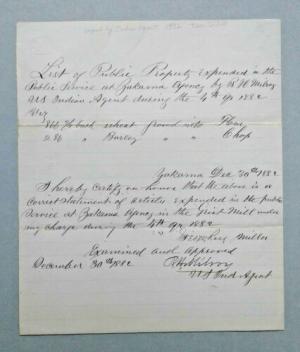 List of Public Property expended in the
Public Service at Yakama Agency by R H Milroy
US Indian Agent during the 4th qr 1882
Viz
bush wheat ground into Flour
2186 " Barley " " Chop
Yakama Dec 30th 1882
I hereby certify on honor that the above is a
correct statement of articles expended in the public
service at Yakama Agency in the Grist Mill under
my charge during the 4th qr 1882
Miller
Examined and approved
December 30th 1882
R H Milroy
US Ind Agent